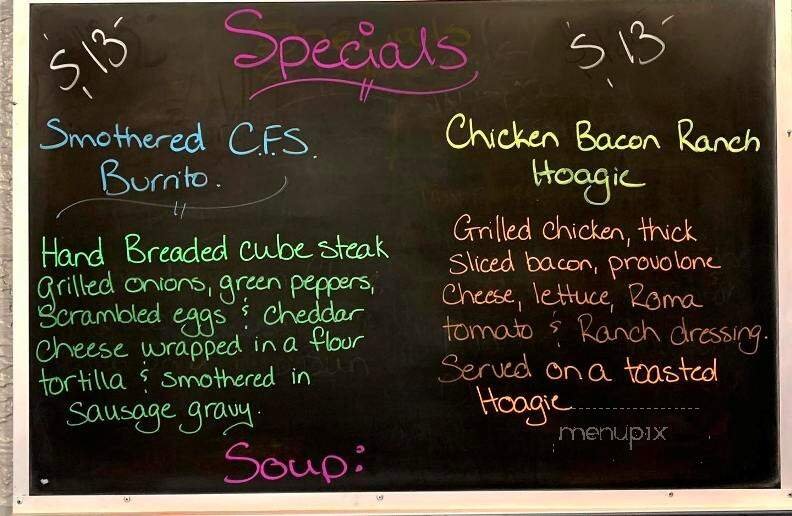 $13
Specials
$13
Smothered C.F.S.
Burrito.
Hand Breaded cube steak
grilled onions, green peppers,
Scrambled eggs & cheddar
cheese wrapped in a flour
tortilla & smothered in
sausage gravy.
Chicken Bacon Ranch
Hoagie
Grilled chicken, thick
Sliced bacon, provolone
Cheese, lettuce, Roma
tomato & Ranch dressing.
Served on a toasted
Hoagie
menupix
Soup: